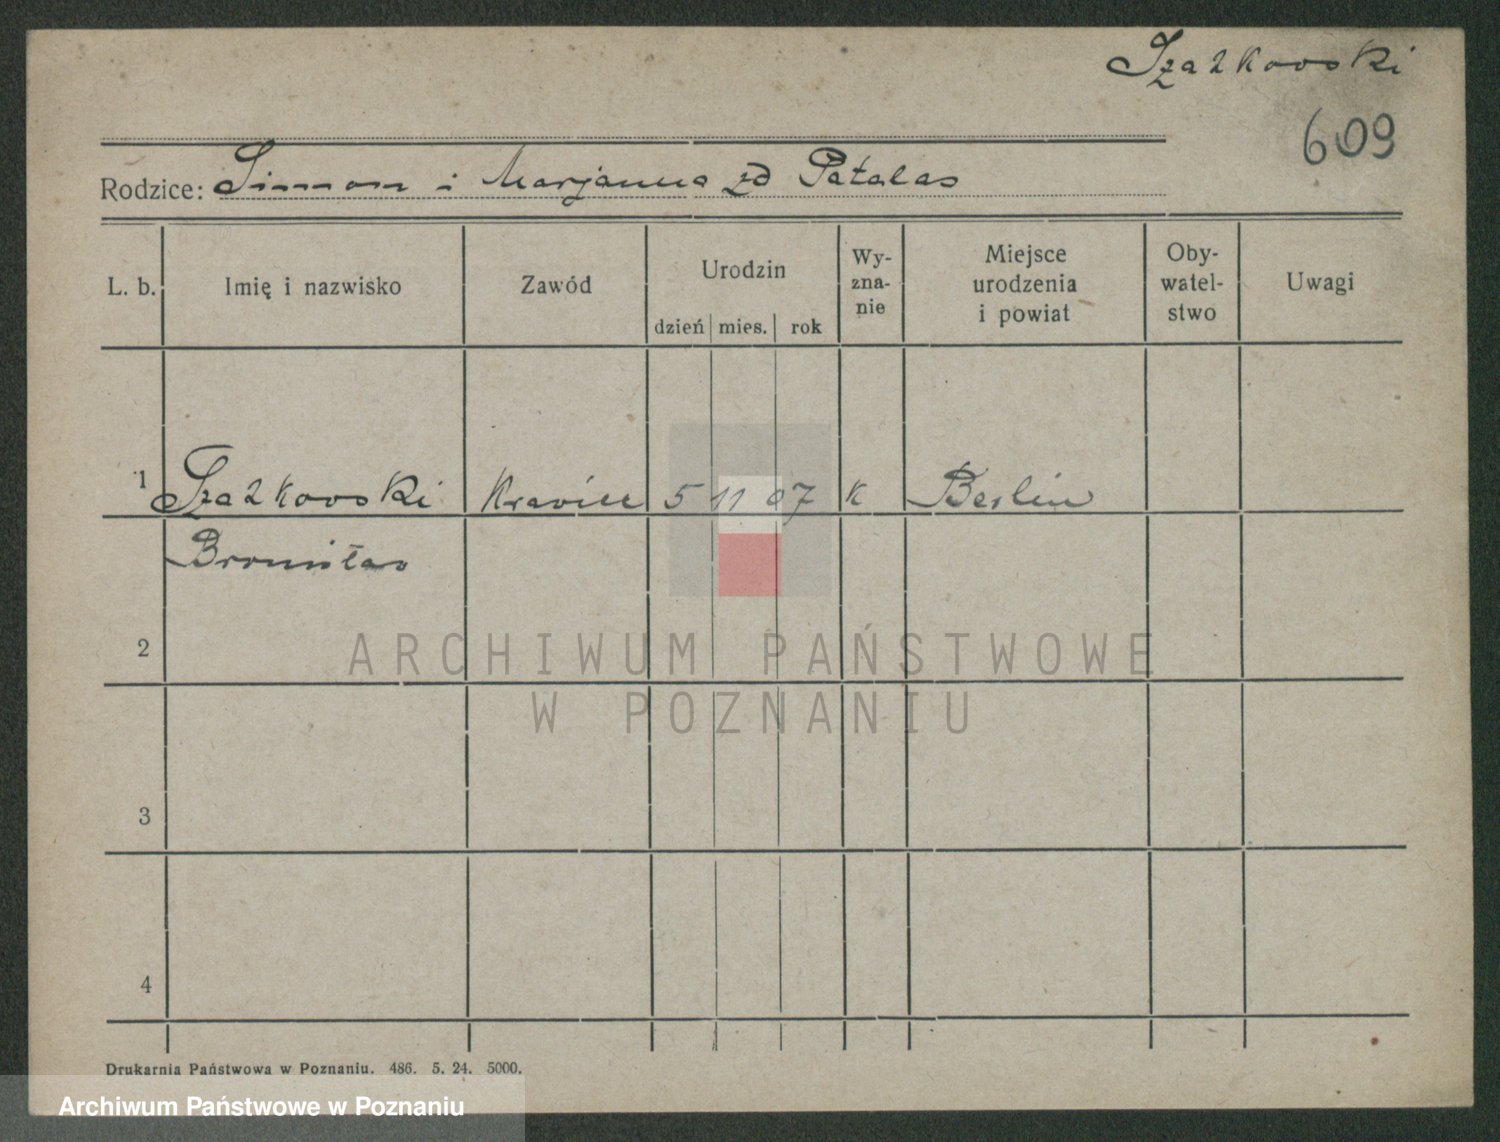 Szatkowski
609
Rodzice: Simon i Marjanna zd Patalas
L. b. Imię i nazwisko Zawód Urodzin dzień mies. rok Wy-zna-nie Miejsce urodzenia i powiat Oby-watel-stwo Uwagi
1 Szatkowski Krawiec 5 11 07 K Berlin
Bronisław
2
ARCHIWUM PAŃSTWOWE
W POZNANIU
3
4
Drukarnia Państwowa w Poznaniu. 486. 5. 24. 5000.
Archiwum Państwowe w Poznaniu